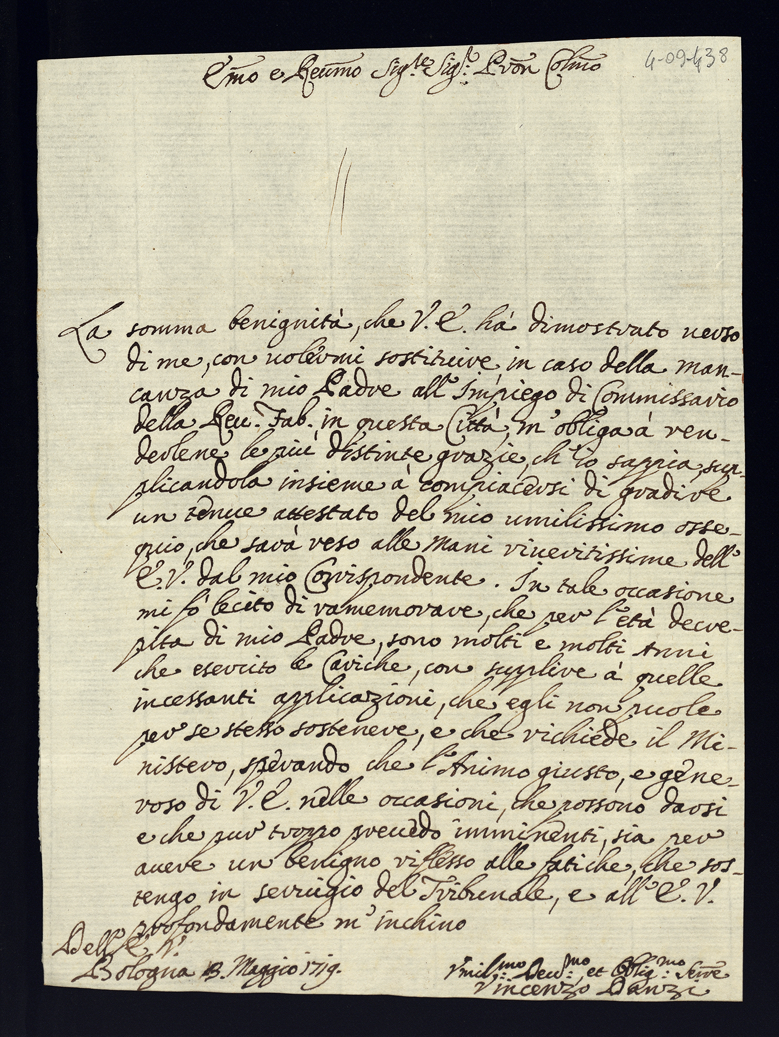 4-09-438
Emo e Reumo Sig.re Sig.r P.ron Colmo
La somma benignità, che V. E. há dimostrato verso
di me, con volermi sostituire, in caso della man-
canza di mio Padre all'Impiego di Commissario
della Reu. Fab. in questa Città m'obliga à ren-
derlene le più distinte grazie, ch'io sappia, sup-
plicandola insieme à compiacersi di gradire
un tenue attestato del mio umilissimo osse-
quio, che sarà reso alle Mani riueritissime dell'
E. V. dal mio Corrispondente. In tale occasione
mi fò lecito di ramemorare, che per l'età decre-
pita di mio Padre, sono molti e molti Anni
che esercito le Cariche, con supplire à quelle
incessanti applicazioni, che egli non puole
per se stesso sostenere, e che richiede il Mi-
nistero, sperando che l'Animo giusto, e gene-
roso di V. E. nelle occasioni, che possono darsi
e che pur troppo preuedo imminenti, sia per
auere un benigno riflesso alle fatiche, che sos-
tengo in seruigio del Tribunale, e all'E. V.
profondamente m'inchino
Dell'E. V.
Bologna 13. Maggio 1719.
Vmil.mo Deu.mo et Oblig.mo Serre
Vincenzo Danzi